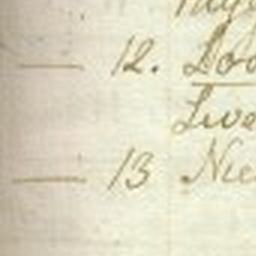 — 12. Doo
Live
— 13 Nie